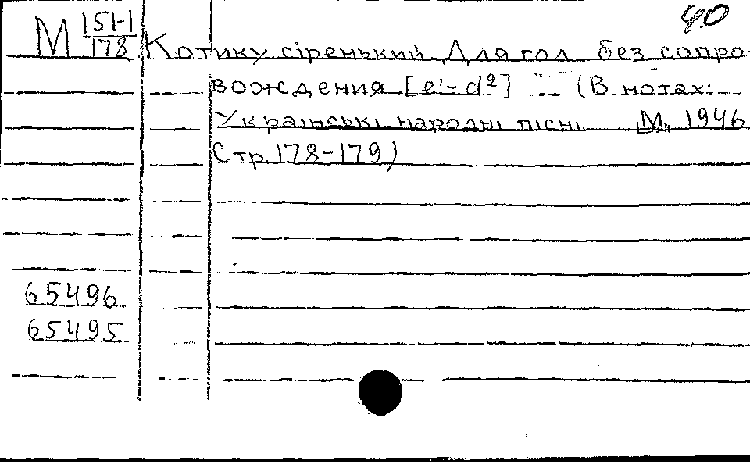 40
М 151-1/178 Котику сіренький Для гол. без сопро
вождения [e¹-d²] — (В нотах:
Українські народні пісні М., 1946
Стр. 178-179)
65496
65495